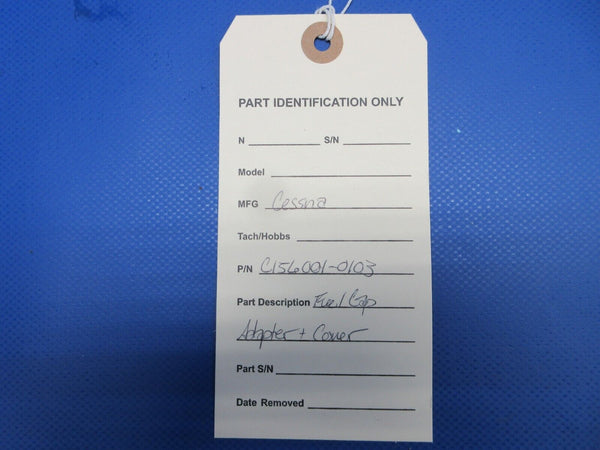 PART IDENTIFICATION ONLY
N S/N
Model
MFG Cessna
Tach/Hobbs
P/N C156001-0103
Part Description Fuel Cap
Adapter + Cover
Part S/N
Date Removed